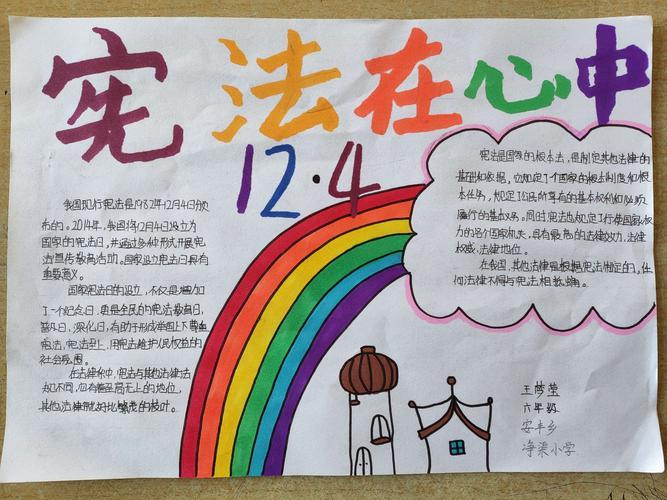 宪法在心中
12·4
我国现行宪法是1982年12月4日颁
布的。2014年，我国将12月4日设立为
国家的宪法日，并通过多种形式开展宪
法宣传教育活动。国家设立宪法日具有
重要意义。
国家宪法日的设立，不仅是增加
了一个纪念日，更是全民的宪法教育日、
普及日、深化日，有助于形成举国上下尊重
宪法、宪法至上、用宪法维护人民权益的
社会氛围。
在法律体中，宪法与其他法律法
规不同，它有着至高无上的地位，
其他法律就好比繁茂的枝叶。
宪法是国家的根本法，是制定其他法律的
基础和依据，它规定了国家的根本制度和根
本任务，规定了公民所享有的基本权利和必须
履行的基本义务。同时宪法也规定了行使国家权
力的各个国家机关，具有最高的法律效力、法律
权威、法律地位。
在我国，其他法律是根据宪法制定的，任
何法律不得与宪法相抵触。
王梦莹
六年级
安丰乡
净渠小学